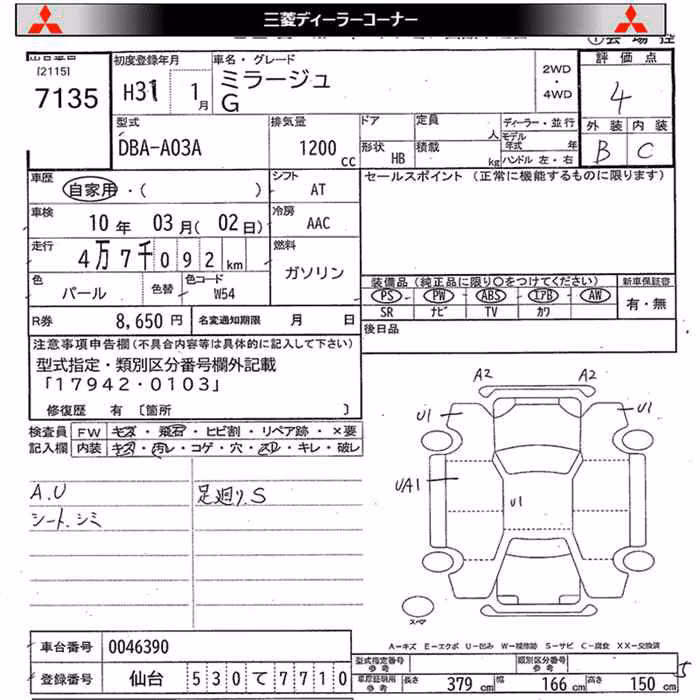 三菱ディーラーコーナー
[2115]
7135
初度登録年月
H31 1月
車名・グレード
ミラージュ
G
2WD
・
4WD
評価点
4
外装 内装
B C
型式
DBA-A03A
排気量
1200cc
ドア
形状 HB
定員 人
積載 kg
ディーラー・並行
モデル年式 年
ハンドル 左・右
車歴
自家用・( )
シフト
AT
セールスポイント (正常に機能するものに限ります)
車検
10年 03月(02日)
冷房
AAC
走行
4万7千092km
燃料
ガソリン
色
パール
色替
色コード
W54
装備品(純正品に限り○をつけてください)
PS PW ABS エアB AW
SR ナビ TV カワ
新車保証書
有・無
R券 8,650円
名変通知期限 月 日
後日品
注意事項申告欄(不具合内容等は具体的に記入して下さい)
型式指定・類別区分番号欄外記載
「17942・0103」
修復歴 有 [箇所 ]
検査員 FW キズ・飛石・ヒビ割・リペア跡・×要
記入欄 内装 キズ・汚レ・コゲ・穴・スレ・キレ・破レ
A.U
シート.シミ
足廻り.S
A2 A2
U1 U1
UA1
U1
スペア
A-キズ E-エクボ U-凹み W-補修跡 S-サビ C-腐食 XX-交換済
車台番号 0046390
登録番号 仙台 530て7710
型式指定番号 参考
類別区分番号 参考
車庫証明用 参考 長さ 379cm 幅 166cm 高さ 150cm